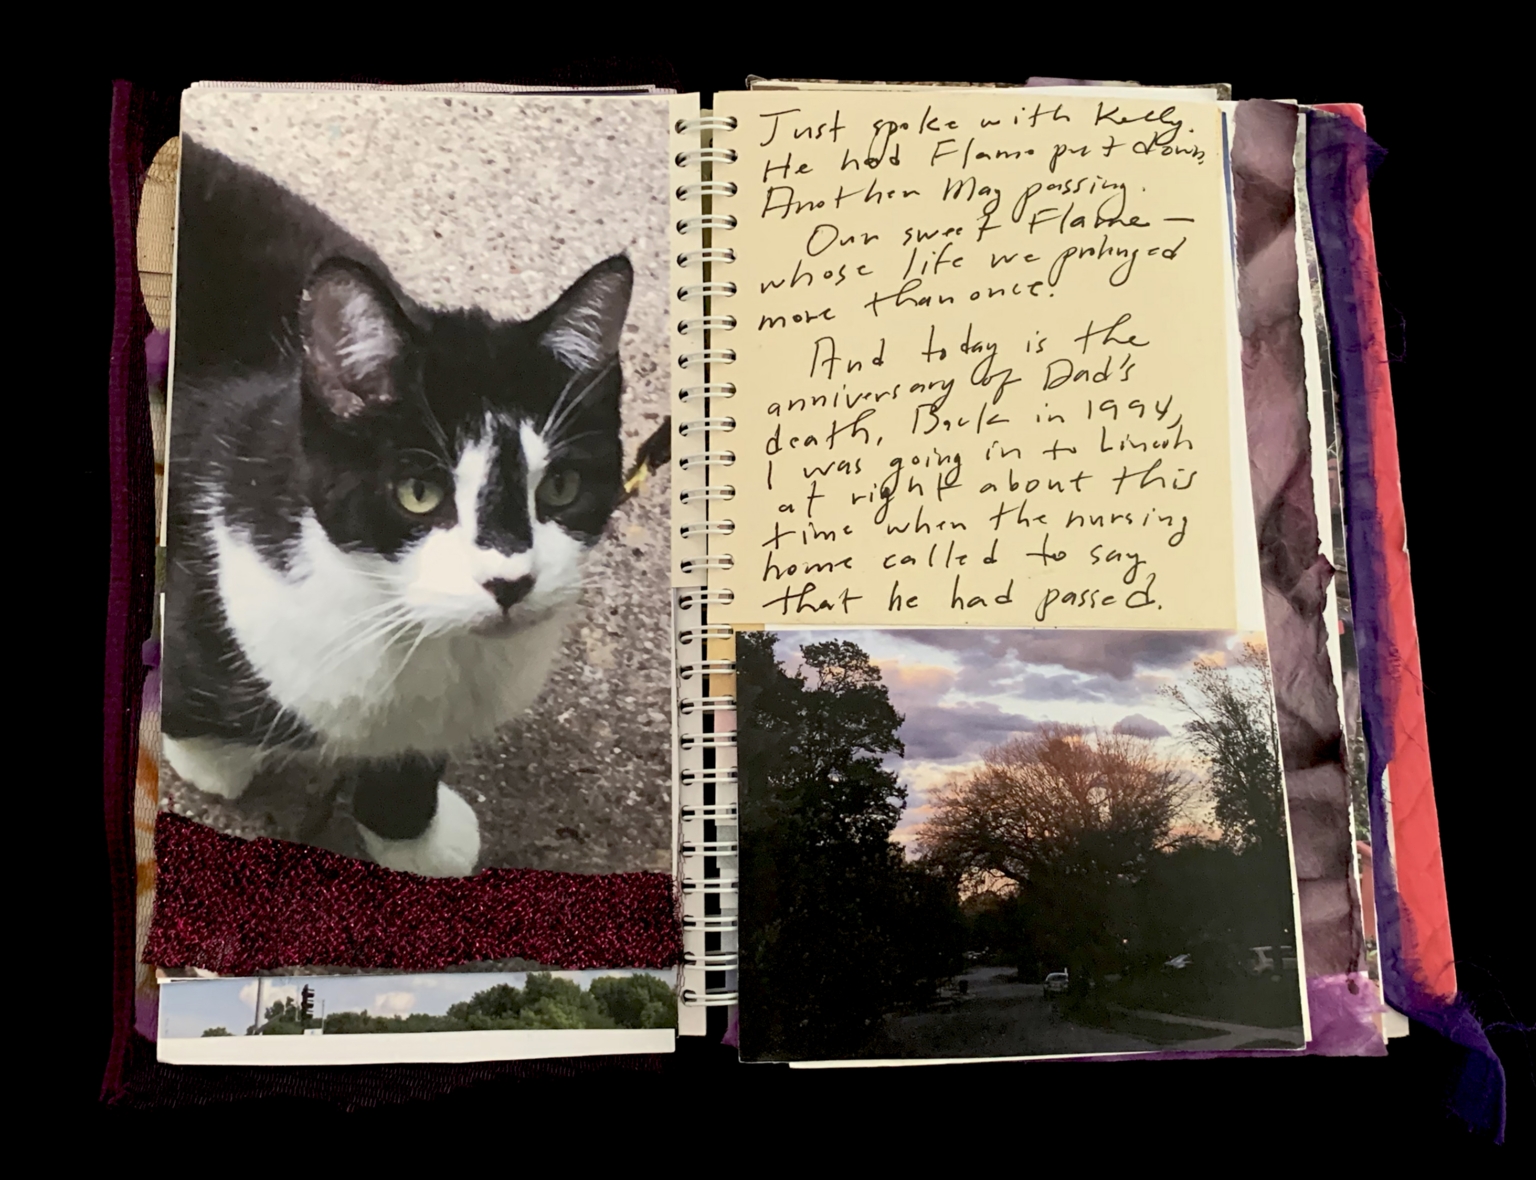 Just spoke with Kelly.
He had Flame put down.
Another May passing.
Our sweet Flame —
whose life we prolonged
more than once.
And today is the
anniversary of Dad's
death, Back in 1994,
I was going in to Lincoln
at right about this
time when the nursing
home called to say
that he had passed.